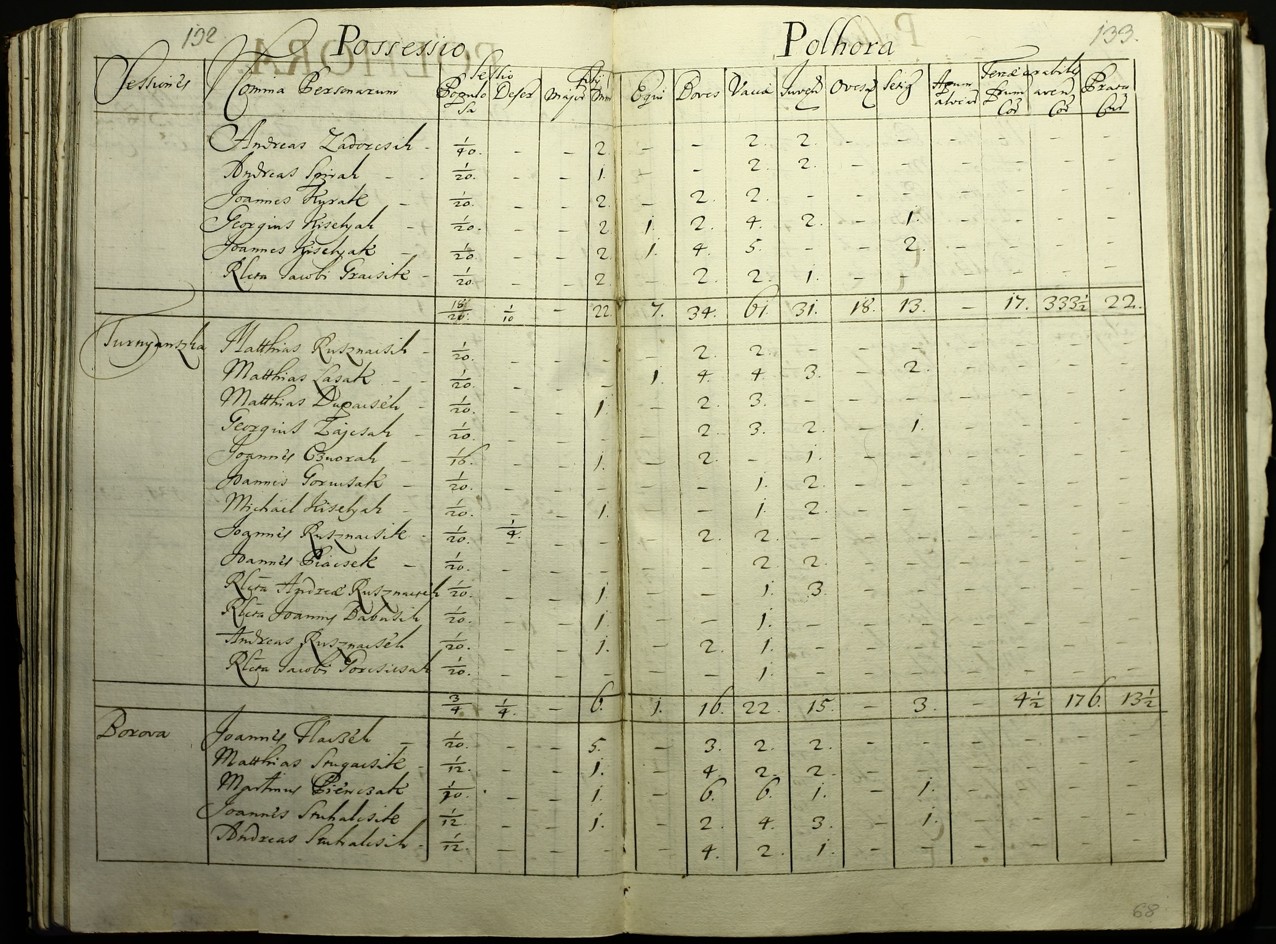 192 Possessio Polhora 133.
Sessiones Nomina Personarum Sessio Populosa Deser. Filij Major Min. Equi Boves Vacca Juvenci Oves Setig Apum Alvear Terræ arabiles Prum Cor aven Cor Prata Cur
Andreas Zadorcsih - 1/40. - - 2. - - 2. 2. - - - - - -
Andreas Spirah - - 1/20. - - 1. - - 2. 2. - - - - - -
Joannes Kyrak - 1/20. - - 2. - 2. 2. - - - - - - -
Georgius Kiselyah - 1/20. - - 2 1. 2. 4. 2. - 1. - - - -
Joannes Kiselyak - 1/20. - - 2 1. 4. 5. - - 2. - - - -
Rlcta Jacobi Gracsik - 1/20. - - 2. - 2. 2. 1. - - - - - -
18/20. 1/10 - 22 7. 34. 61. 31. 18. 13. - 17. 333 1/2 22.
Turnyanszka Matthias Rusznacsih - 1/20. - - - - 2. 2. - - - - - - -
Matthias Lasak - - 1/20. - - - 1. 4. 4 3. - 2. - - - -
Matthias Dupacséh - 1/20. - - 1. - 2. 3. - - - - - - -
Georgius Zajcsah - 1/20. - - - - 2. 3. 2. - 1. - - - -
Joannes - 1/16. - - 1. - 2. - 1. - - - - - -
Joannes - 1/20. - - - - - 1. 2. - - - - - -
Michael Kiselyah - 1/20. - - 1. - - 1. 2. - - - - - -
Joannes Rusznacsik - 1/20. 1/4. - - - 2. 2. - - - - - - -
Joannes - 1/20. - - - - - 2 2. - - - - - -
Rlcta Andreæ Rusznacsih 1/20. - - 1. - - 1. 3. - - - - - -
Rlcta Joannis Babusih 1/20. - - 1. - - 1. - - - - - - -
Andreas Rusznacséh - 1/20. - - 1. - 2. 1. - - - - - - -
Rlcta Jacobi 1/20. - - - - - 1. - - - - - - -
3/4. 1/4. - 6. 1. 16. 22. 15. - 3. - 4 1/2 176. 13 1/2
Borova Joannes - 1/20. - - 5. - 3. 2. 2. - - - - - -
Matthias - 1/12. - - 1. - 4. 2. 2. - - - - - -
Martinus 1/20. - - 1. - 6. 6. 1. - 1. - - - -
Joannes Stuhalcsik 1/12 - - 1. - 2. 4. 3. - 1. - - - -
Andreas Stuhalcsih - 1/12. - - - - 4. 2. 1. - - - - - -
68